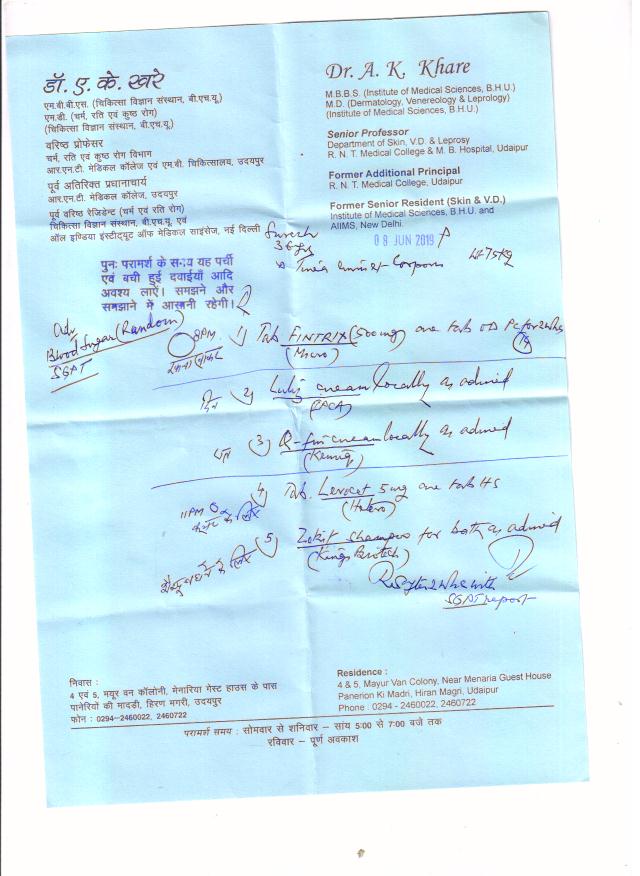 डॉ. ए. के. खरे
एम.बी.बी.एस. (चिकित्सा विज्ञान संस्थान, बी.एच.यू.)
एम.डी. (चर्म, रति एवं कुष्ठ रोग)
(चिकित्सा विज्ञान संस्थान, बी.एच.यू.)
वरिष्ठ प्रोफेसर
चर्म, रति एवं कुष्ठ रोग विभाग
आर.एन.टी. मेडिकल कॉलेज एवं एम.बी. चिकित्सालय, उदयपुर
पूर्व अतिरिक्त प्रधानाचार्य
आर.एन.टी. मेडिकल कॉलेज, उदयपुर
पूर्व वरिष्ठ रेजिडेन्ट (चर्म एवं रति रोग)
चिकित्सा विज्ञान संस्थान, बी.एच.यू. एवं
ऑल इण्डिया इंस्टीट्यूट ऑफ मेडिकल साइंसेज, नई दिल्ली
Dr. A. K. Khare
M.B.B.S. (Institute of Medical Sciences, B.H.U.)
M.D. (Dermatology, Venereology & Leprology)
(Institute of Medical Sciences, B.H.U.)
Senior Professor
Department of Skin, V.D. & Leprosy
R. N. T. Medical College & M. B. Hospital, Udaipur
Former Additional Principal
R. N. T. Medical College, Udaipur
Former Senior Resident (Skin & V.D.)
Institute of Medical Sciences, B.H.U. and
AIIMS, New Delhi.
08 JUN 2019
Suresh
36 yrs
पुनः परामर्श के समय यह पर्ची
एवं बची हुई दवाईयाँ आदि
अवश्य लाऐं। समझने और
समझाने में आसानी रहेगी।
Tinea Corporis
Wt 75kg
Adv
Blood Sugar (Random)
SGPT
8PM 1) Tab FINTRIX (500mg) one tab OD PC for 2 wks
(Micro)
14
दिन 2) cream locally as advised
3) cream locally as advised
4) Tab. Levocet 5mg one tab HS
11PM
(Hetero)
5) shampoo for bath as advised
(Kings Biotech)
Rev after 2 wks with
SGPT report
निवास :
4 एवं 5, मयूर वन कॉलोनी, मेनारिया गेस्ट हाउस के पास
पानेरियों की मादडी, हिरण मगरी, उदयपुर
फोन : 0294-2460022, 2460722
Residence :
4 & 5, Mayur Van Colony, Near Menaria Guest House
Panerion Ki Madri, Hiran Magri, Udaipur
Phone : 0294 - 2460022, 2460722
परामर्श समय : सोमवार से शनिवार – सांय 5:00 से 7:00 बजे तक
रविवार – पूर्ण अवकाश